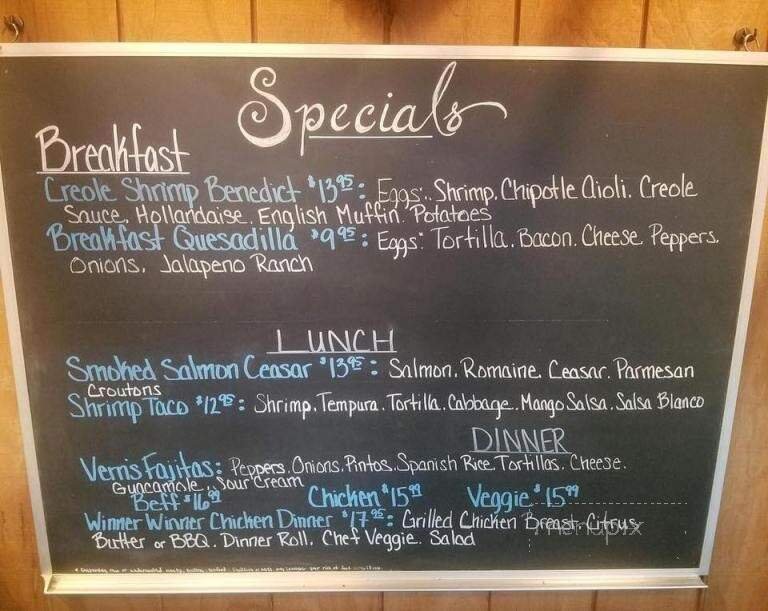 Specials
Breakfast
Creole Shrimp Benedict $13.95: Eggs*. Shrimp. Chipotle Aioli. Creole
Sauce. Hollandaise. English Muffin. Potatoes
Breakfast Quesadilla $9.95: Eggs* Tortilla. Bacon. Cheese. Peppers.
Onions. Jalapeno Ranch
LUNCH
Smoked Salmon Ceasar $13.95: Salmon. Romaine. Ceasar. Parmesan
Croutons
Shrimp Taco $12.95: Shrimp. Tempura. Tortilla. Cabbage. Mango Salsa. Salsa Blanco
DINNER
Vern's Fajitas: Peppers. Onions. Pintos. Spanish Rice. Tortillas. Cheese.
Guacamole. Sour Cream
Beff $16.99 Chicken $15.99 Veggie $15.99
Winner Winner Chicken Dinner $17.95: Grilled Chicken Breast. Citrus
Butter or BBQ. Dinner Roll. Chef Veggie. Salad
menupix